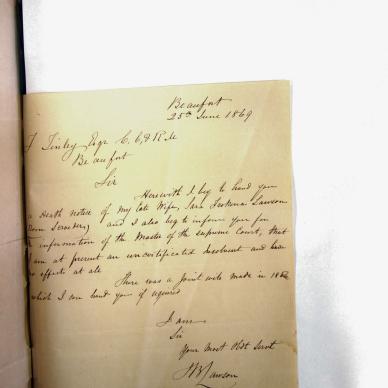 Beaufort
25th June 1869
J Tinley Esqr C. C & R. M
Beaufort
Sir
Herewith I beg to hand you
a Death notice of my late Wife, Sara Lawson
and I also beg to inform you for
information of the Master of the Supreme Court, that
I am at present an uncertificated Insolvent and have
no effects at all
There was a Joint will made in
which I can hand you if required
I am
Sir
Your Most Obdt Servt
Lawson